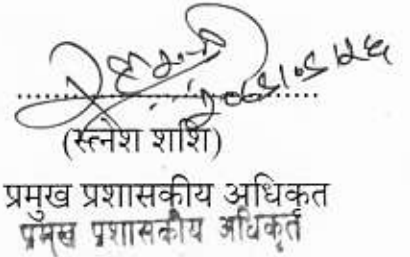 (स्नेश शाशि)
प्रमुख प्रशासकीय अधिकृत
प्रमुख प्रशासकीय अधिकृत